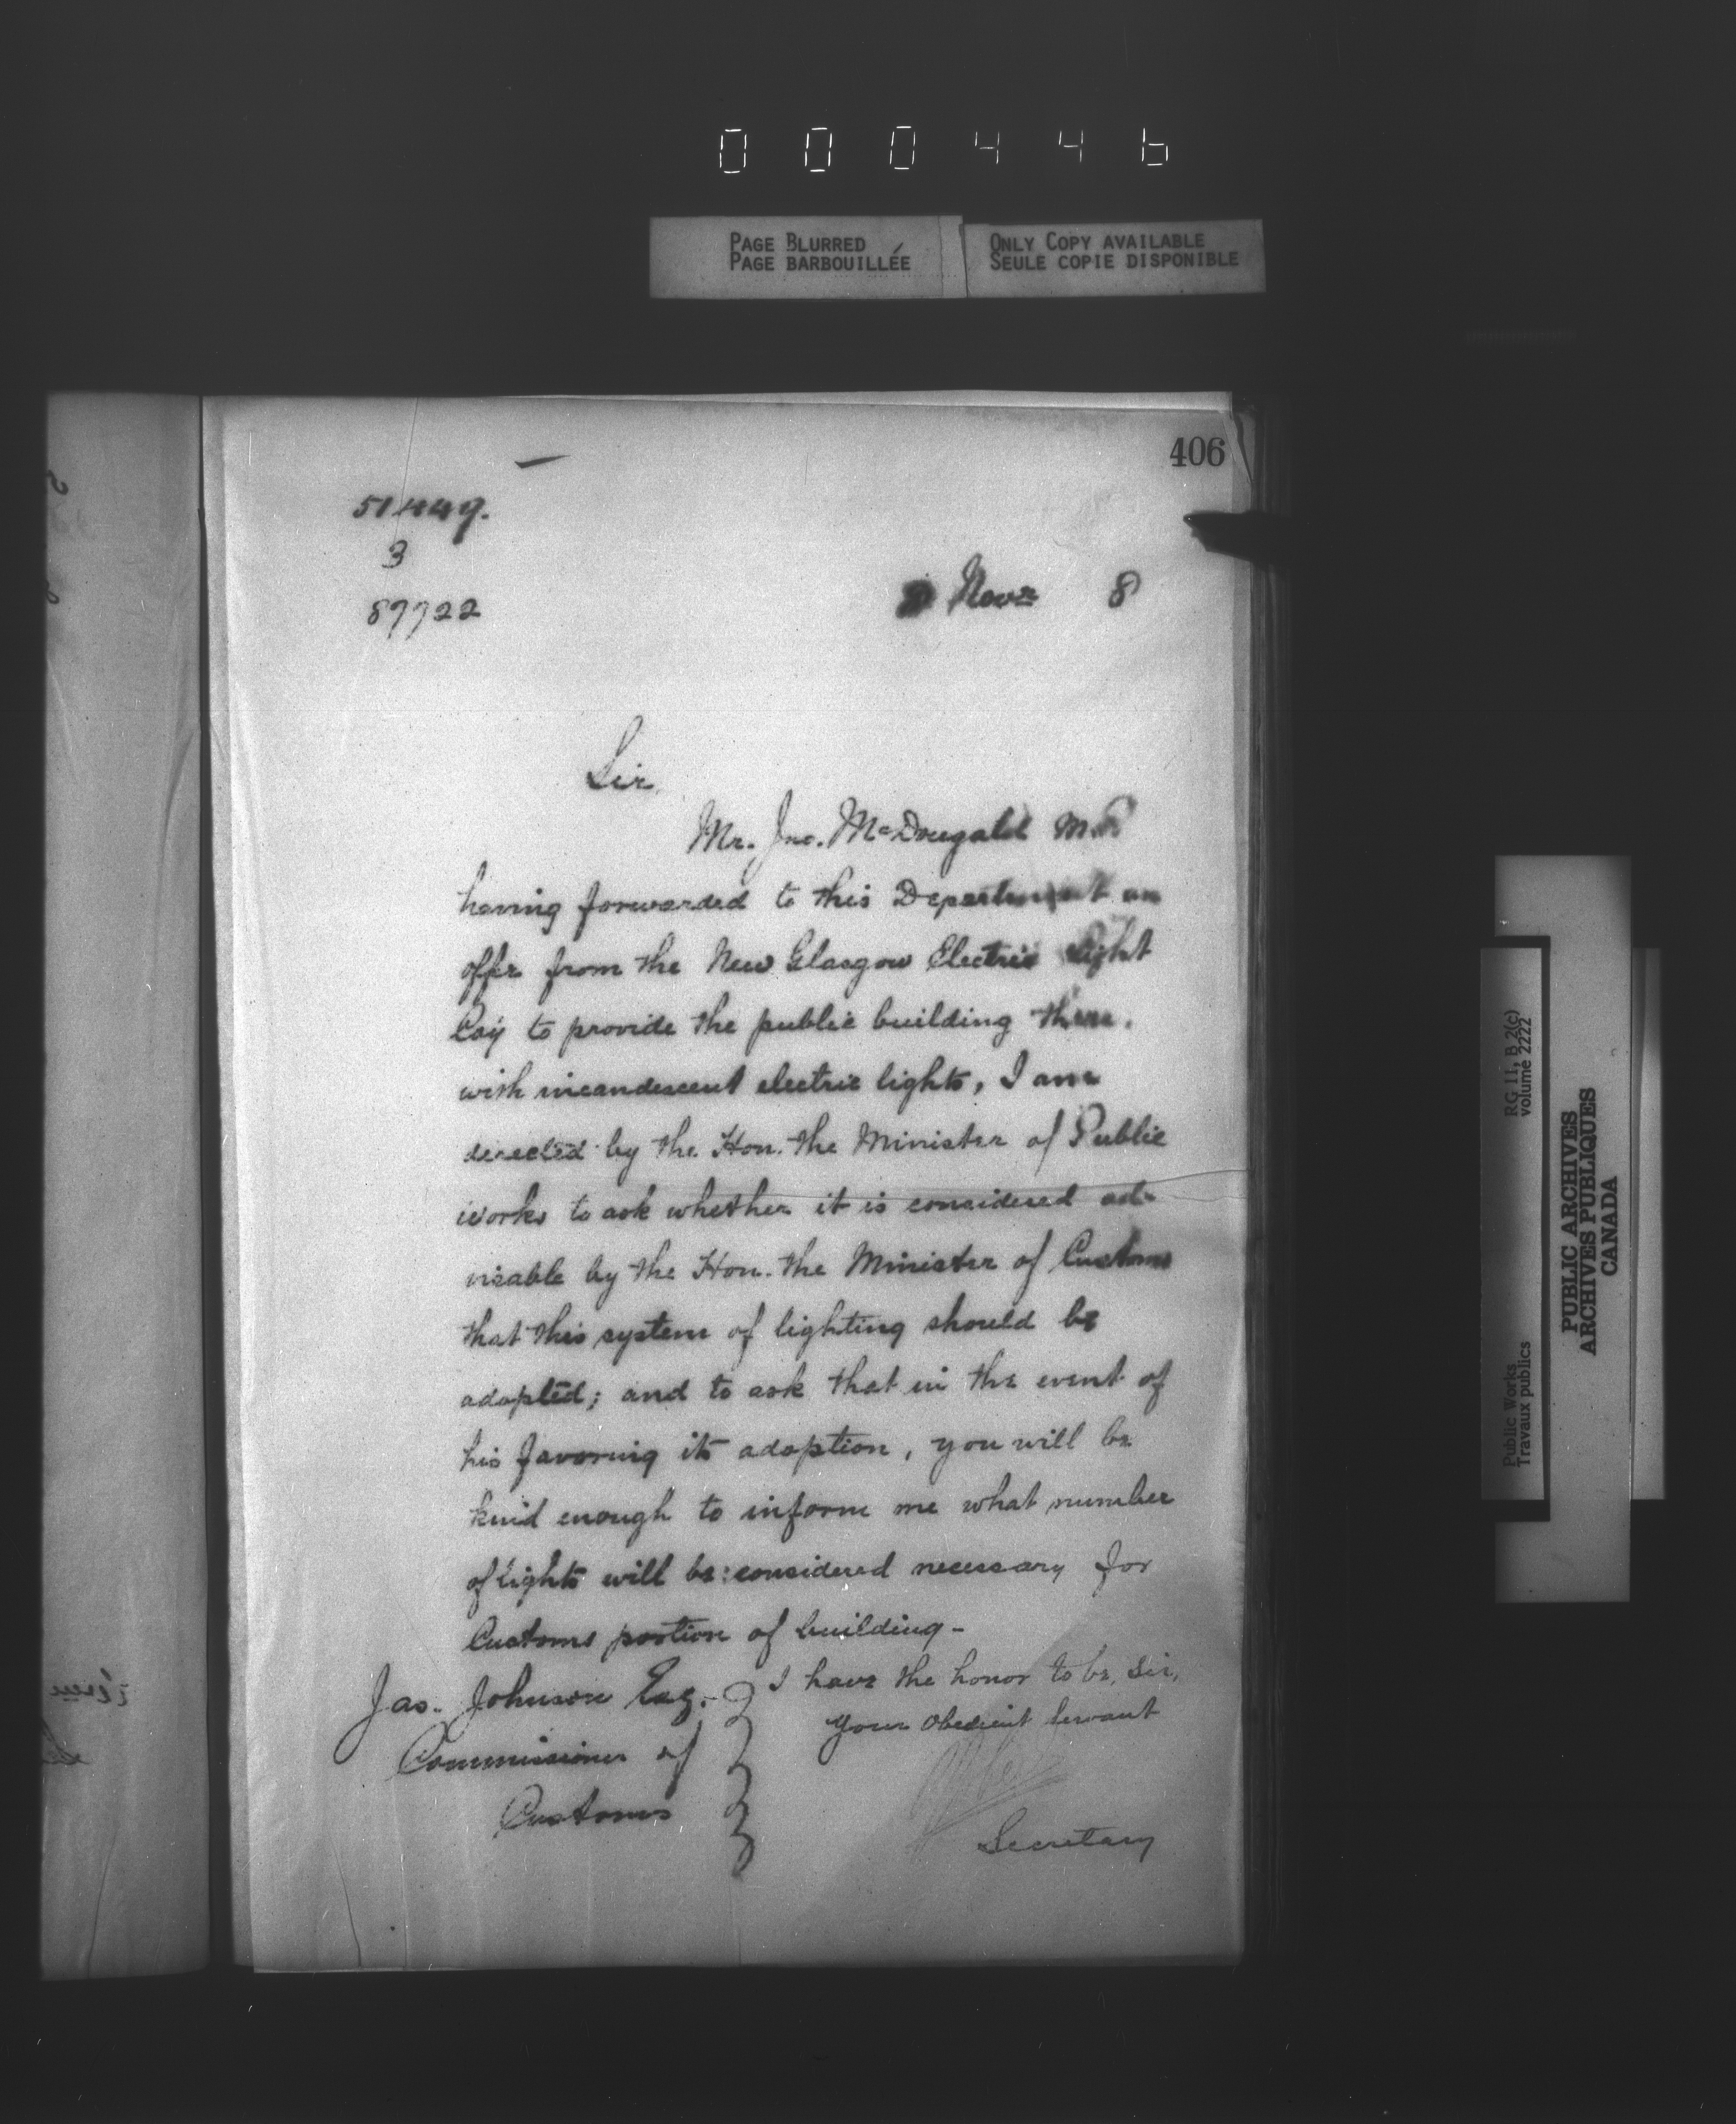 000446
PAGE BLURRED
PAGE BARBOUILLÉE
ONLY COPY AVAILABLE
SEULE COPIE DISPONIBLE
406
51449.
3
87722
Novr 8
Sir
Mr. Jno. McDougald M.P.
having forwarded to this Department an
offer from the New Glasgow Electric Light
Coy to provide the public building there.
with incandescent electric lights, I am
directed by the Hon. the Minister of Public
Works to ask whether it is considered ad-
visable by the Hon. the Minister of Customs
that this system of lighting should be
adopted; and to ask that in the event of
his favoring its adoption, you will be
kind enough to inform me what number
of lights will be considered necessary for
Customs portion of building -
I have the honor to be, Sir,
Your Obedient Servant
Secretary
Jas. Johnson Esq.
Commissioner of
Customs
Public Works
Travaux publics
RG 11, B 2(c)
volume 2222
PUBLIC ARCHIVES
ARCHIVES PUBLIQUES
CANADA